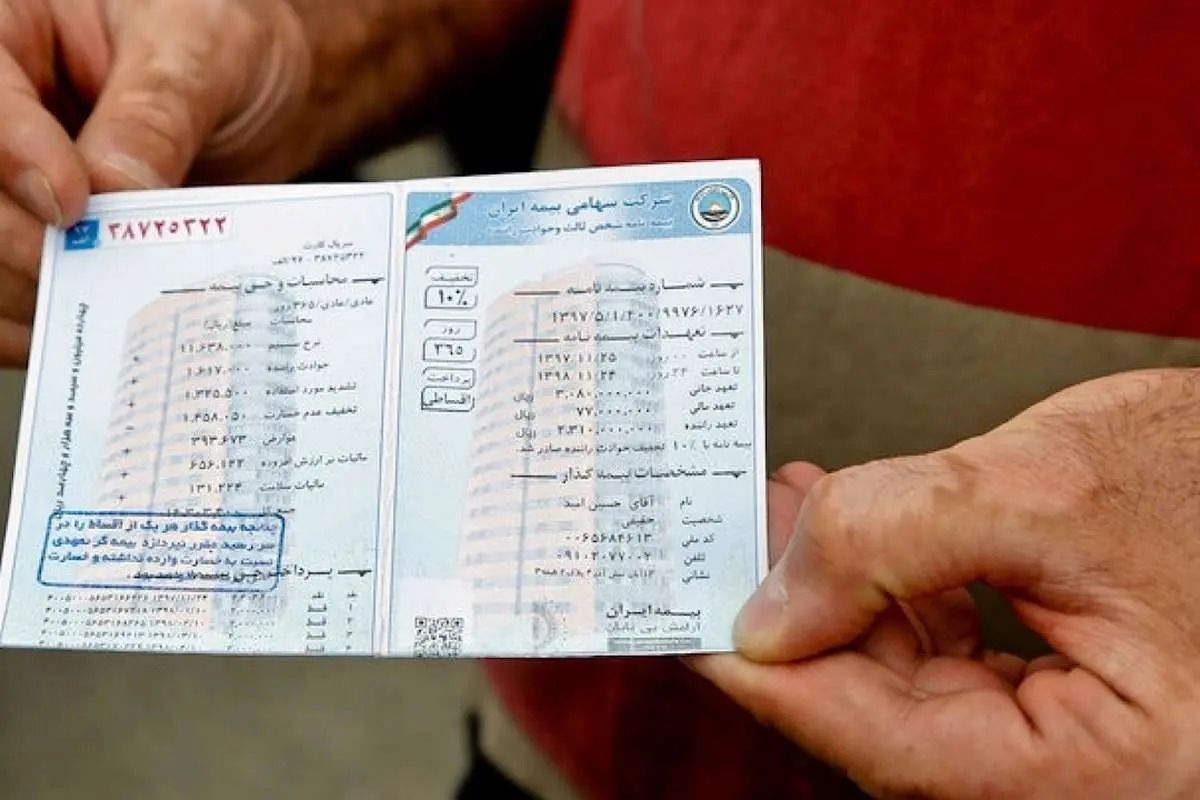 شرکت سهامی بیمه ایران
بیمه نامه شخص ثالث و حوادث راننده
شماره بیمه نامه
۱۳۹۷/۵/۱/۲۰۰/۹۹۷۶/۱۶۲۷
تعهدات بیمه نامه
از ساعت ۰۰ روز ۱۳۹۷/۱۱/۲۵
تا ساعت ۲۴ روز ۱۳۹۸/۱۱/۲۴
تعهد جانی ۳,۰۸۰,۰۰۰,۰۰۰ ریال
تعهد مالی ۷۷,۰۰۰,۰۰۰ ریال
تعهد راننده ۲,۳۱۰,۰۰۰,۰۰۰ ریال
بیمه نامه با ۱۰٪ تخفیف حوادث راننده صادر شد.
تخفیف
۱۰٪
روز
۳۶۵
پرداخت
اقساطی
مشخصات بیمه گذار
نام آقای حسین اسد
شخصیت حقیقی
کد ملی ۰۰۶۵۶۸۴۶۱۳
تلفن ۰۹۱۰۲۰۷۷۰۰۲
نشانی
بیمه ایران
آرامش بی پایان
۳۸۷۲۵۳۲۲
۹۷
الف
سریال کارت
۹۷/الف - ۳۸۷۲۵۳۲۲
محاسبات و حق بیمه
عادی/عادی/۳۶۵ روز
محاسبات مبلغ(ریال)
نرخ ۱۱,۶۳۸,۰۰۰ +
حوادث راننده ۱,۶۱۷,۰۰۰ +
تشدید مورد استفاده ۱,۳۲۵,۵۰۰ +
تخفیف عدم خسارت ۱,۴۵۸,۰۵۰ -
عوارض ۳۹۳,۶۷۳ +
مالیات بر ارزش افزوده ۶۵۶,۱۲۲ +
مالیات سلامت ۱۳۱,۲۲۴ +
چهارده میلیون و سیصد و سه هزار و چهارصد ریال
چنانچه بیمه گذار هر یک از اقساط را در
سر رسید مقرر نپردازد بیمه گر تعهدی
نسبت به خسارت وارده نداشته و خسارت
پرداخت
نقد
قسط ۱
قسط ۲